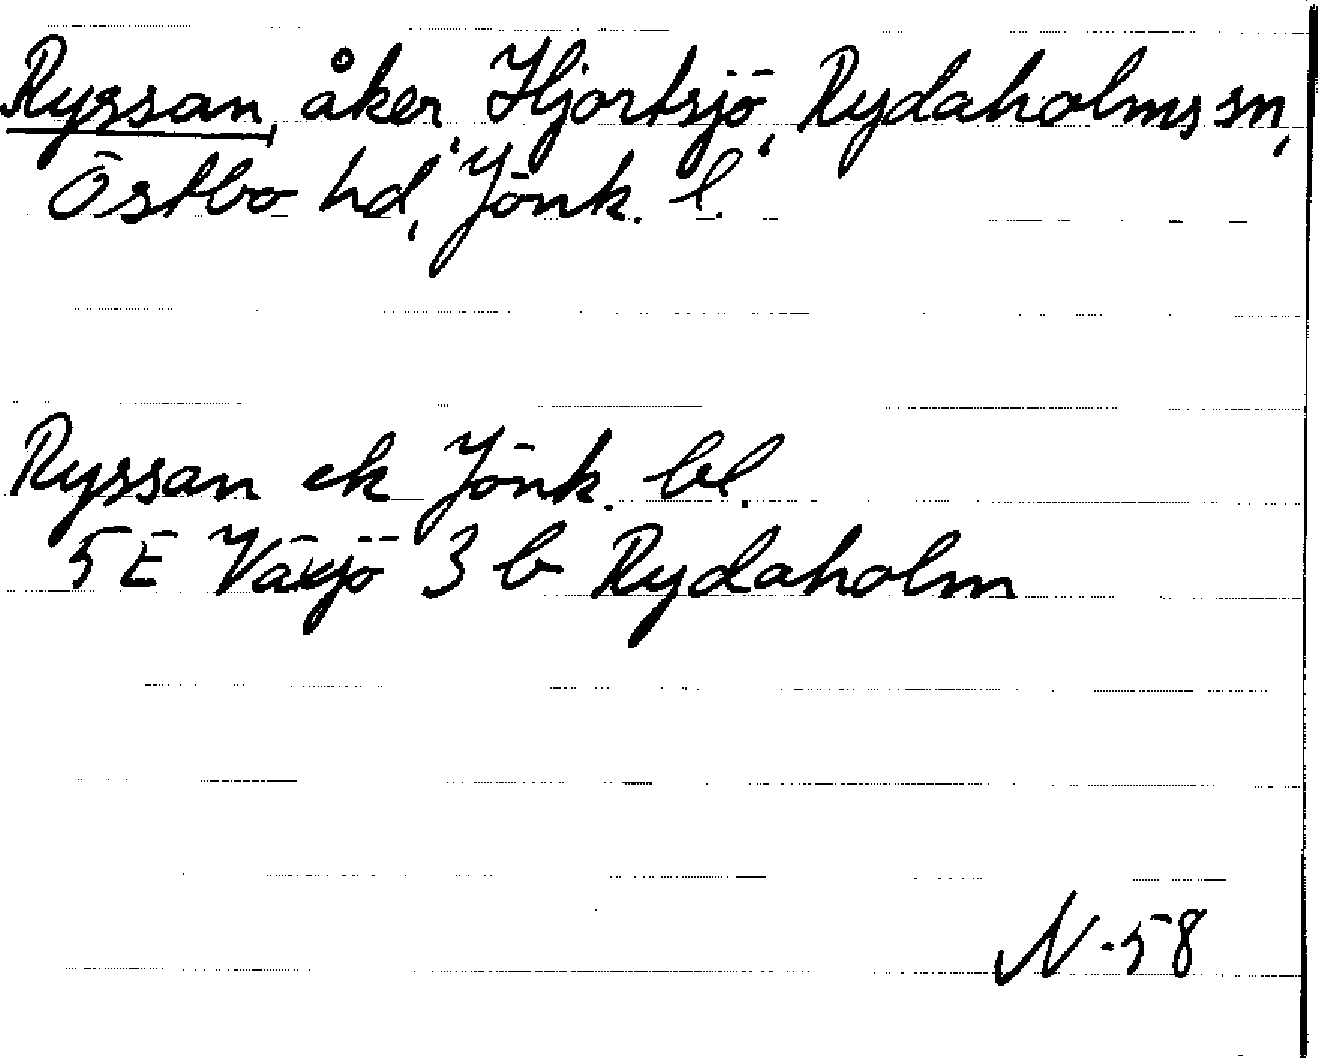 Ryssan, åker, Hjortsjö, Rydaholms sn,
Östbo hd, Jönk. l.
Ryssan ek Jönk. bl.
5E Växjö 3 b Rydaholm
N-58